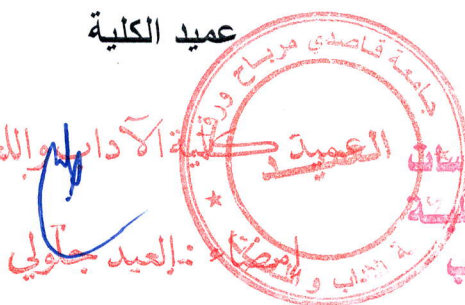 عميد الكلية
جامعة قاصدي مرباح ورقلة
العميد
كلية الآداب واللغ
امضاء : العيد جلولي